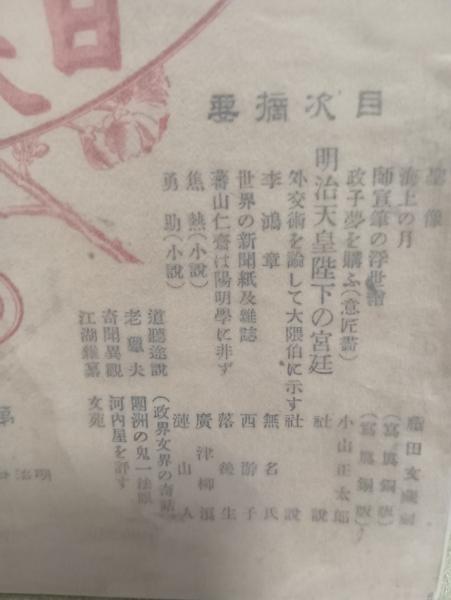 目次摘要
聖像
海上の月
師宣筆の浮世繪（寫眞銅版）
政子夢を購ふ（意匠畫）小山正太郎
明治天皇陛下の宮廷 社說
外交術を論して大隈伯に示す 社說
李鴻章 無名氏
世界の新聞紙及雜誌 西游子
蕃山仁齋は陽明學に非ず 落後生
焦熱（小說）廣津柳浪
勇助（小說）漣山人
道聽途說（政界文界の奇話）
老
奇聞異觀 河内屋を評す
江湖 文苑
明治